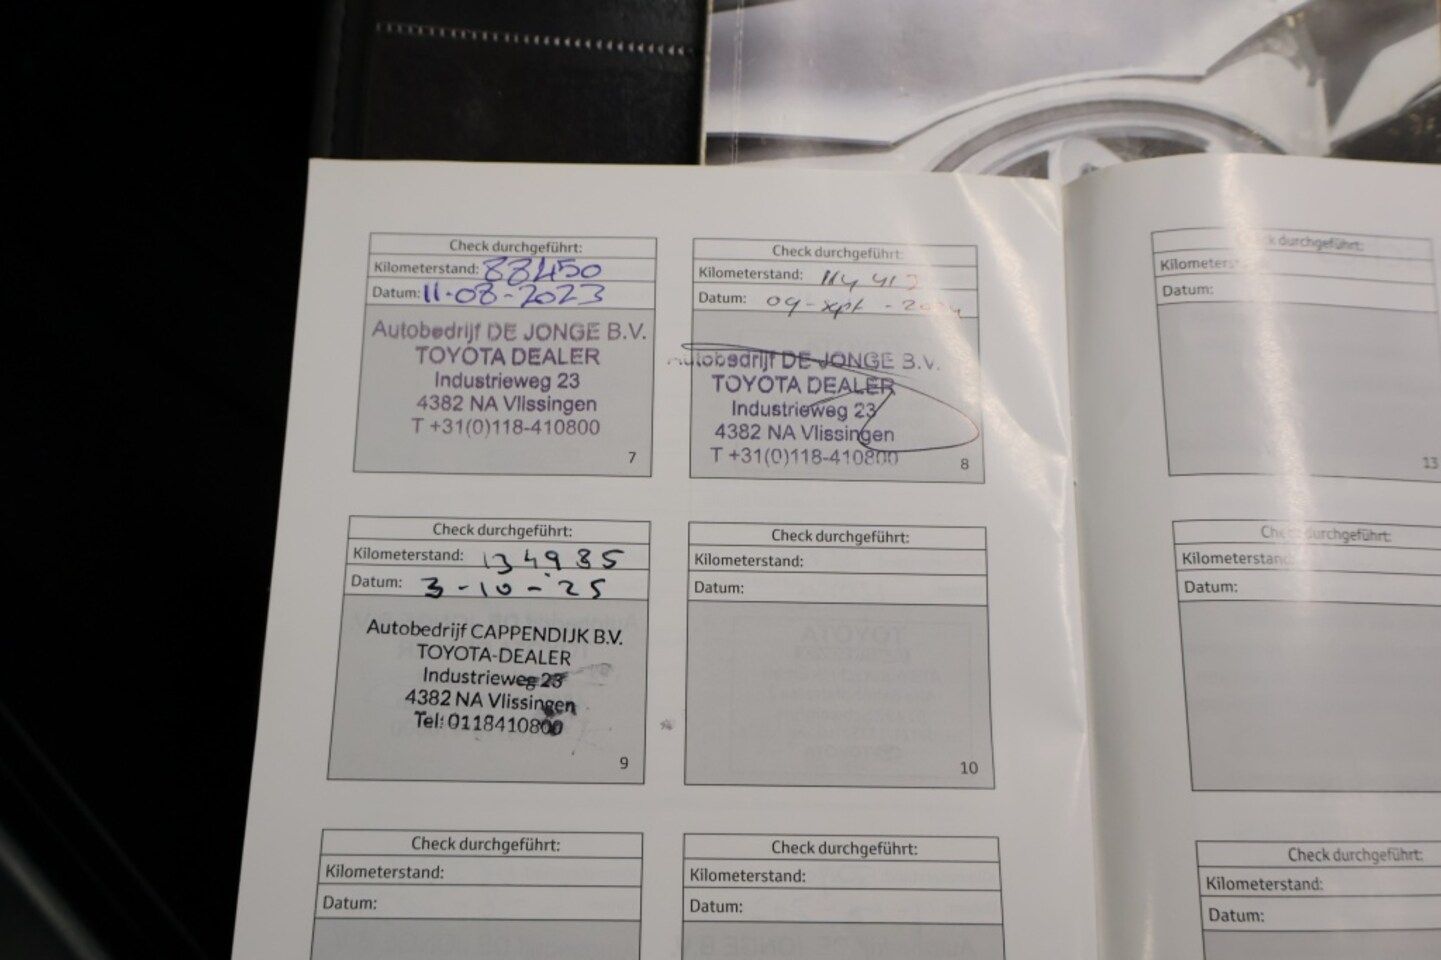 Check durchgeführt:
Kilometerstand: 88450
Datum: 11-08-2023
Autobedrijf DE JONGE B.V.
TOYOTA DEALER
Industrieweg 23
4382 NA Vlissingen
T +31(0)118-410800
7
Check durchgeführt:
Kilometerstand:
Datum: 09-sept-
Autobedrijf DE JONGE B.V.
TOYOTA DEALER
Industrieweg 23
4382 NA Vlissingen
T +31(0)118-410800
8
Check durchgeführt:
Kilometerstand:
Datum:
13
Check durchgeführt:
Kilometerstand: 134985
Datum: 3-10-'25
Autobedrijf CAPPENDIJK B.V.
TOYOTA-DEALER
Industrieweg 23
4382 NA Vlissingen
Tel: 0118410800
9
Check durchgeführt:
Kilometerstand:
Datum:
10
Check durchgeführt:
Kilometerstand:
Datum:
Check durchgeführt:
Kilometerstand:
Datum:
Check durchgeführt:
Kilometerstand:
Datum:
Check durchgeführt:
Kilometerstand:
Datum: